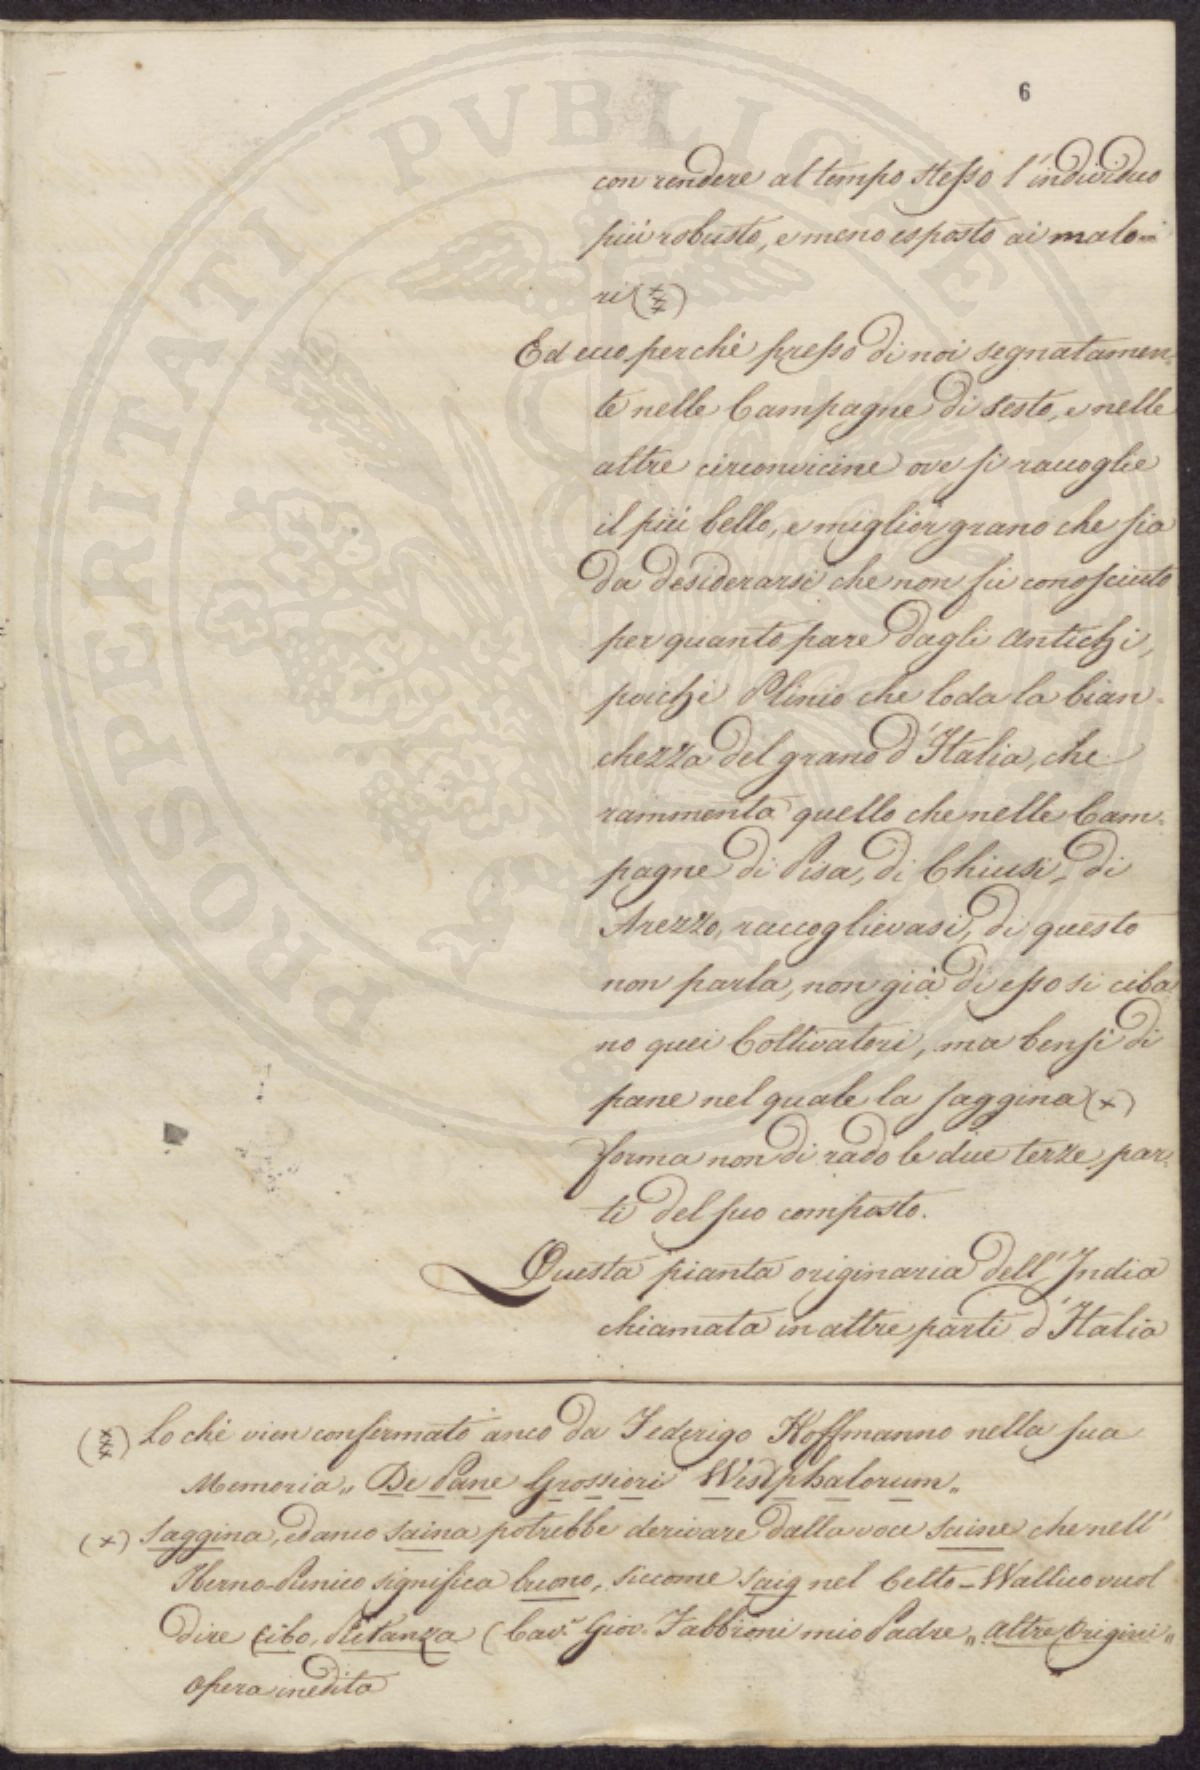 6
con rendere al tempo stesso l'individuo
più robusto, e meno esposto ai malo=
ri (xxx)
Ed ecco perchè presso di noi segnatamen=
te nelle Campagne di Sesto, e nelle
altre circonvicine ove si raccoglie
il più bello, e miglior grano che sia
da desiderarsi che non fù conosciuto
per quanto pare dagli antichi,
poichè Plinio che loda la bian=
chezza del grano d'Italia, che
rammenta quello che nelle Cam=
pagne di Pisa, di Chiusi, di
Arezzo, raccoglievasi, di questo
non parla, non già di esso si ciba
no quei Coltivatori, ma bensì di
pane nel quale la saggina (x)
forma non di rado le due terze par=
ti del suo composto.
Questa pianta originaria dell'India
chiamata in altre parti d'Italia
(xxx) Lo chè vien confermato anco da Federigo Hoffmanno nella sua
Memoria „ De Pane Grossiori Westphalorum „
(x) Saggina, ed anco saina potrebbe derivare dalla voce saine che nell'
Iberno-Punico significa buono, siccome saig nel Celto-Wallico vuol
dire cibo, Pietanza (Cav.r Giov. Fabbroni mio Padre „ Altre Origini „
Opera inedita
PROSPERITATI PVBLICAE